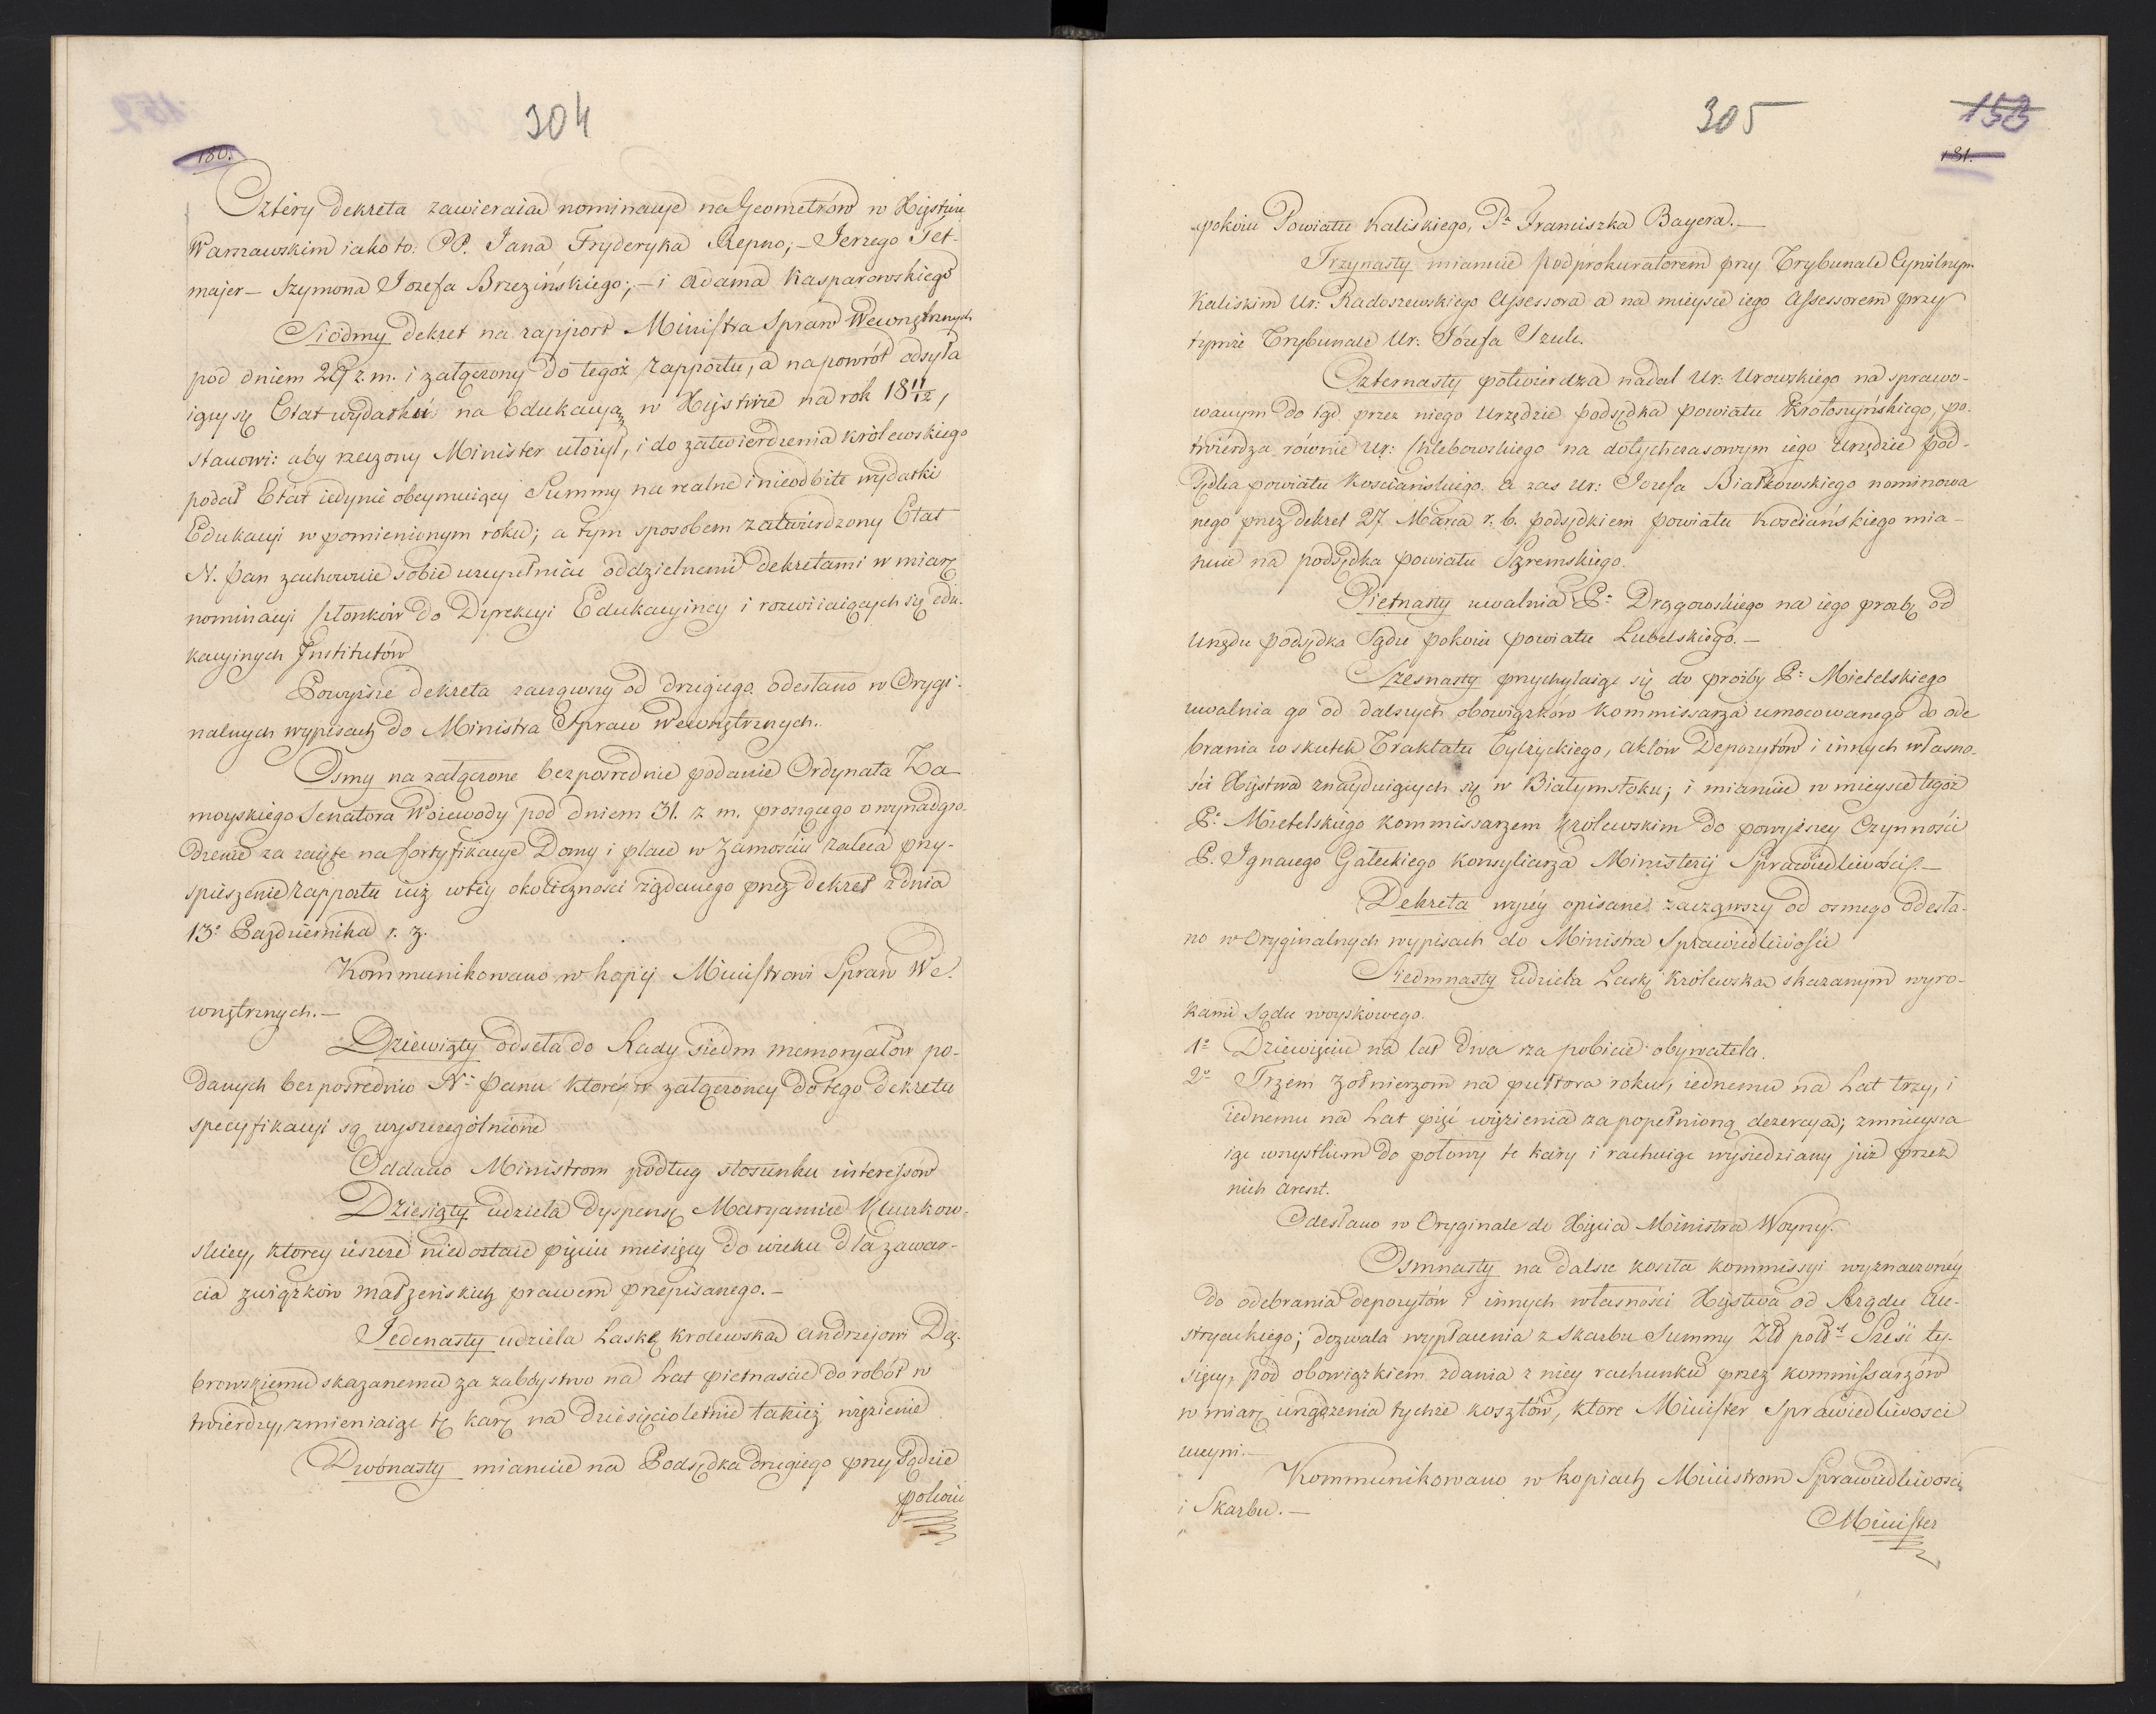 304
180.
Cztéry dekreta zawieraią nominacye na Geometrów w Xięstwie
Warszawskim iako to: PP. Jana Fryderyka Repno; – Jerzego Tet-
majer – Szymona Jozefa Brzezińskiego; – i Adama Kasparowskiego
Siódmy dekret na rapport Ministra Spraw Wewnętrznych
pod dniem 29 z. m. i załączony do tegoż rapportu, a na powrót odsyła
iący się Etat wydatków na Edukacyą w Xięstwie na rok 18 11/12,
stanowi: aby rzeczony Minister ułożył, i do zatwierdzenia królewskiego
podał Etat iedynie obeymuiący Summy na realne i nieodbite wydatki
Edukacyi w pomienionym roku; a tym sposobem zatwierdzony Etat
N. Pan zachowuie sobie uzupełniać oddzielnemi dekretami w miarę
nominacyi członków do Dyrekcyi Edukacyiney i rozwiiaiących się edu-
kacyinych Institutów
Powyższe dekreta zacząwszy od drugiego odesłano w Orygi-
nalnych wypisach do Ministra Spraw Wewnętrznych.
Osmy na załączone bezpośrednie podanie Ordynata Za-
moyskiego Senatora Woiewody pod dniem 31. z. m. proszącego o wynadgro-
dzenie za zaięte na fortyfikacye Domy i place w Zamościu zaleca przy-
spieszenie rapportu iuż w tey okoliczności żądanego przez dekret z dnia
13º Października r. z.
Kommunikowano w kopij Ministrowi Spraw We-
wnętrznych. –
Dziewiąty odseła do Rady siedm memoryałów po-
danych bezpośrednio Nº Panu które w załączoney do tego dekretu
specyfikacyi są wyszczególnione
Oddano Ministrom podług stosunku interessów
Dziesiąty udziela dyspensę Maryannie Kluszkow-
skiey, ktorey ieszcze niedostaie pięciu miesięcy do wieku dla zawar-
cia związków małżeńskich prawem przepisanego. –
Jedenasty udziela Laskę krolewską Andrzejowi Dą-
browskiemu skazanemu za zabóystwo na Lat pietnaście do robót w
twierdzy, zmieniaiąc tę karę na dziesięcioletnie takież więzienie
Dwónasty mianuie na Podsędka drugiego przy Sądzie
pokoiu
305
153
181.
pokoiu Powiatu Kaliskiego, Pª Franciszka Bayera. –
Trzynasty mianuie podprokuratorem przy Trybunale Cywilnym
Kaliskim Ur: Radoszewskiego Assessora a na mieysce iego Assessorem przy
tymże Trybunale Ur: Józefa Szulc.
Czternasty potwierdza nadal Ur: Urowskiego na sprawo-
wanym do tąd przez niego Urzędzie podsędka powiatu Krotoszyńskiego, po-
twierdza równie Ur: Chlebowskiego na dotychczasowym iego Urzędzie pod-
sędka powiatu Kościańskiego. a zaś Ur: Jozefa Białkowskiego nominowa
nego przez dekret 27 Marca r. b. podsędkiem powiatu Kościańskiego mia-
nuie na podsędka powiatu Szremskiego.
Pietnasty uwalnia Pª Drągowskiego na iego prozbę od
Urzędu podsędka Sądu pokoiu powiatu Lubelskiego. –
Szesnasty przychylaiąc się do prośby Pª Mietelskiego
uwalnia go od dalszych obowiązków Kommissarza umocowanego do ode
brania w skutek Traktatu Tylżyckiego, aktów Depozytów i innych własno-
ści Xięstwa znayduiących się w Białymstoku; i mianuie w mieysce tegoż
Pª Mietelskiego Kommissarzem Królewskim do powyższey Czynności
P. Ignacego Gałeckiego Konsyliarza Ministerij Sprawiedliwości. –
Dekreta wyżéy opisane zacząwszy od osmego odesła-
no w Oryginalnych wypisach do Ministra Sprawiedliwości
Siedmnasty udziela Laskę królewską skazanym wyro-
kami Sądu woyskowego.
1º Dziewięciu na lat dwa za pobicie obywatela.
2º Trzem żołnierzom na pułtora roku, iednemu na Lat trzy, i
iednemu na Lat pięć więzienia za popełnioną dezercyą; zmnieysza
iąc wszystkim do połowy te kary i rachuiąc wysiedziany już przez
nich areszt.
Odesłano w Oryginale do Xięcia Ministra Woyny.
Osmnasty na dalsze koszta kommissyi wyznaczonéy
do odebrania depozytów i innych własności Xięstwa od Rządu Au-
stryackiego; dozwala wypłacenia z skarbu Summy Złł pols. Sześć ty-
sięcy, pod obowiązkiem zdania z niey rachunku przez kommissarzów
w miarę urządzenia tychże kosztów, ktore Minister Sprawiedliwosci
uczyni. –
Kommunikowano w kopiach Ministrom Sprawiedliwości
i Skarbu. –
Minister